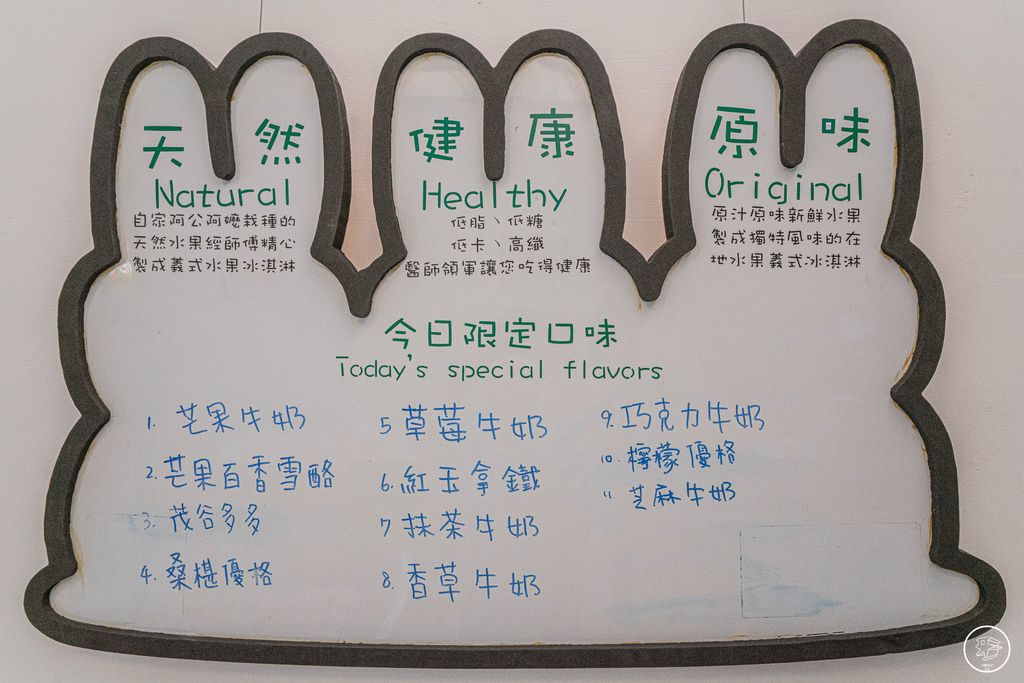 天然
Natural
自家阿公阿嬤栽種的
天然水果經師傅精心
製成義式水果冰淇淋
健康
Healthy
低脂、低糖
低卡、高纖
醫師領軍讓您吃得健康
原味
Original
原汁原味新鮮水果
製成獨特風味的在
地水果義式冰淇淋
今日限定口味
Today's special flavors
1. 芒果牛奶
2. 芒果百香雪酪
3. 茂谷多多
4. 桑椹優格
5 草莓牛奶
6. 紅玉拿鐵
7 抹茶牛奶
8. 香草牛奶
9. 巧克力牛奶
10. 檸檬優格
11 芝麻牛奶